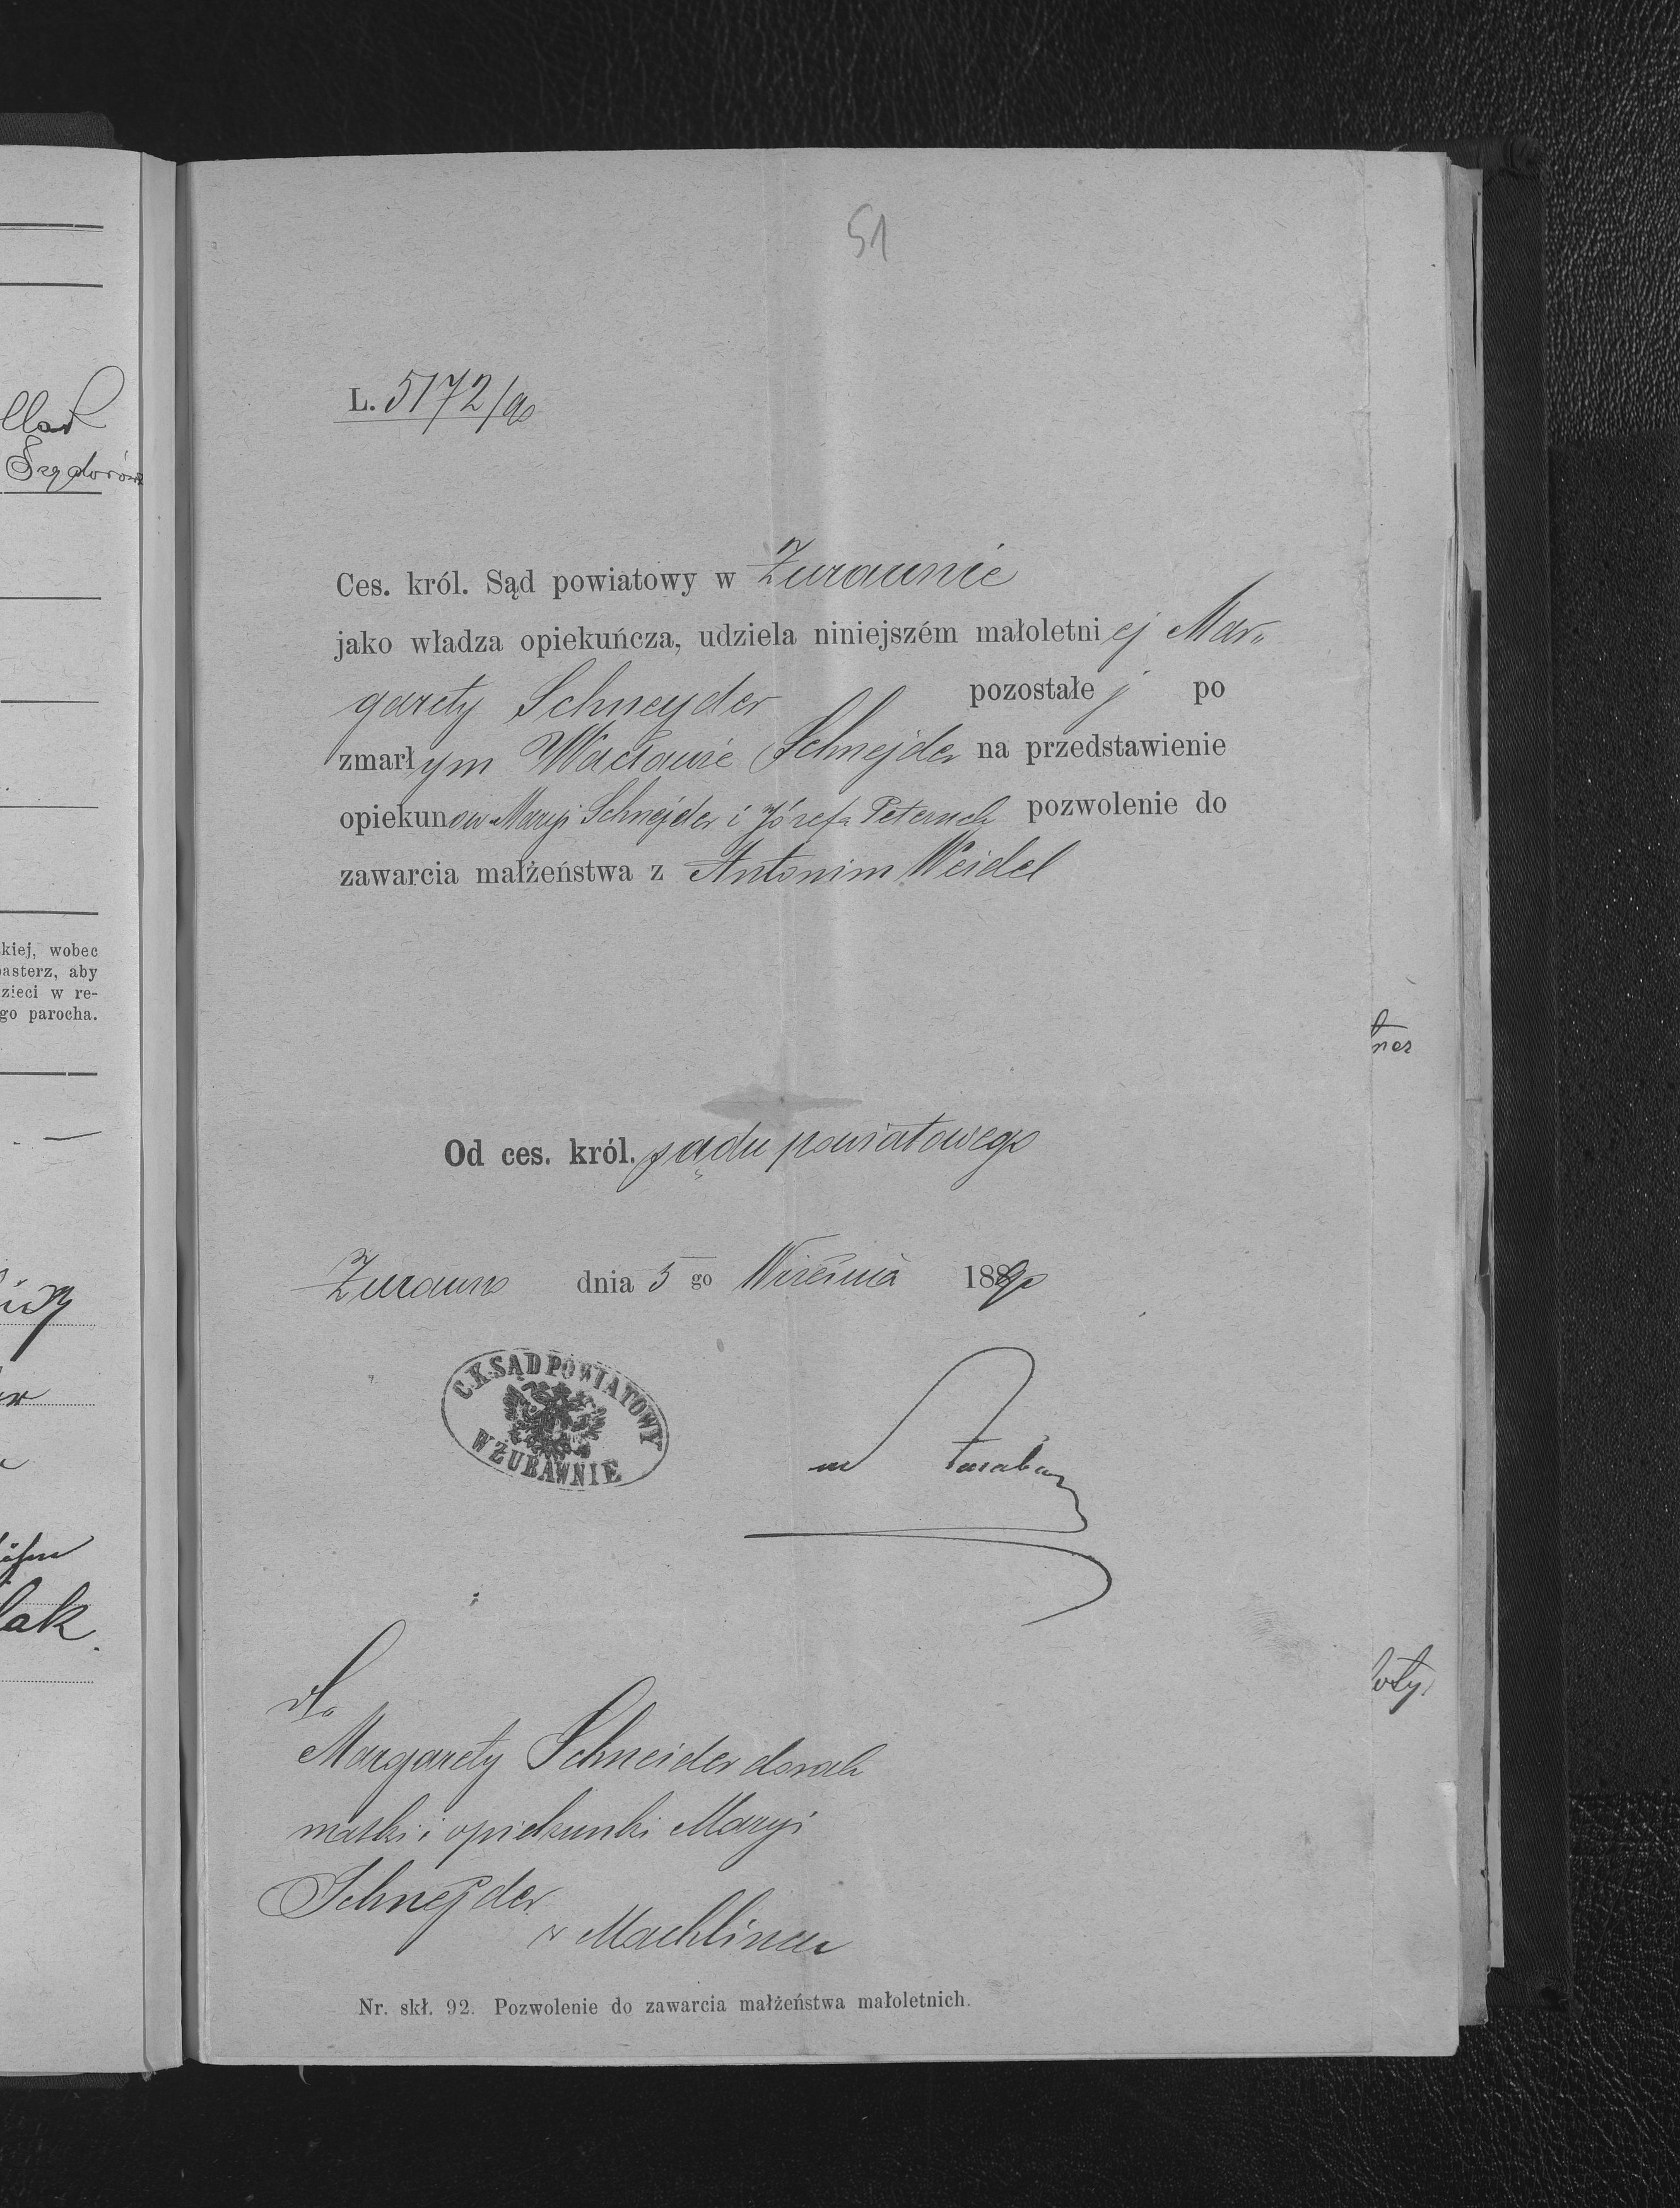 51
L. 5172/90
Ces. król. Sąd powiatowy w Żurawnie
jako władza opiekuńcza, udziela niniejszém małoletniej Mar„
garety Schneyder pozostałej po
zmarłym Wacławie Schnejder na przedstawienie
opiekunow Maryi Schnejder i Józefa pozwolenie do
zawarcia małżeństwa z Antonim Weidel
Od ces. król. sądu powiatowego
Żurawno dnia 5 go Września 1890
C. K. SĄD POWIATOWY
W ŻURAWNIE
dla
Margarety Schneider do rąk
matki i opiekunki Maryi
Schnejder
w Machlincu
Nr. skł. 92. Pozwolenie do zawarcia małżeństwa małoletnich.
kiej, wobec
asterz, aby
zieci w re-
go parocha.
lak